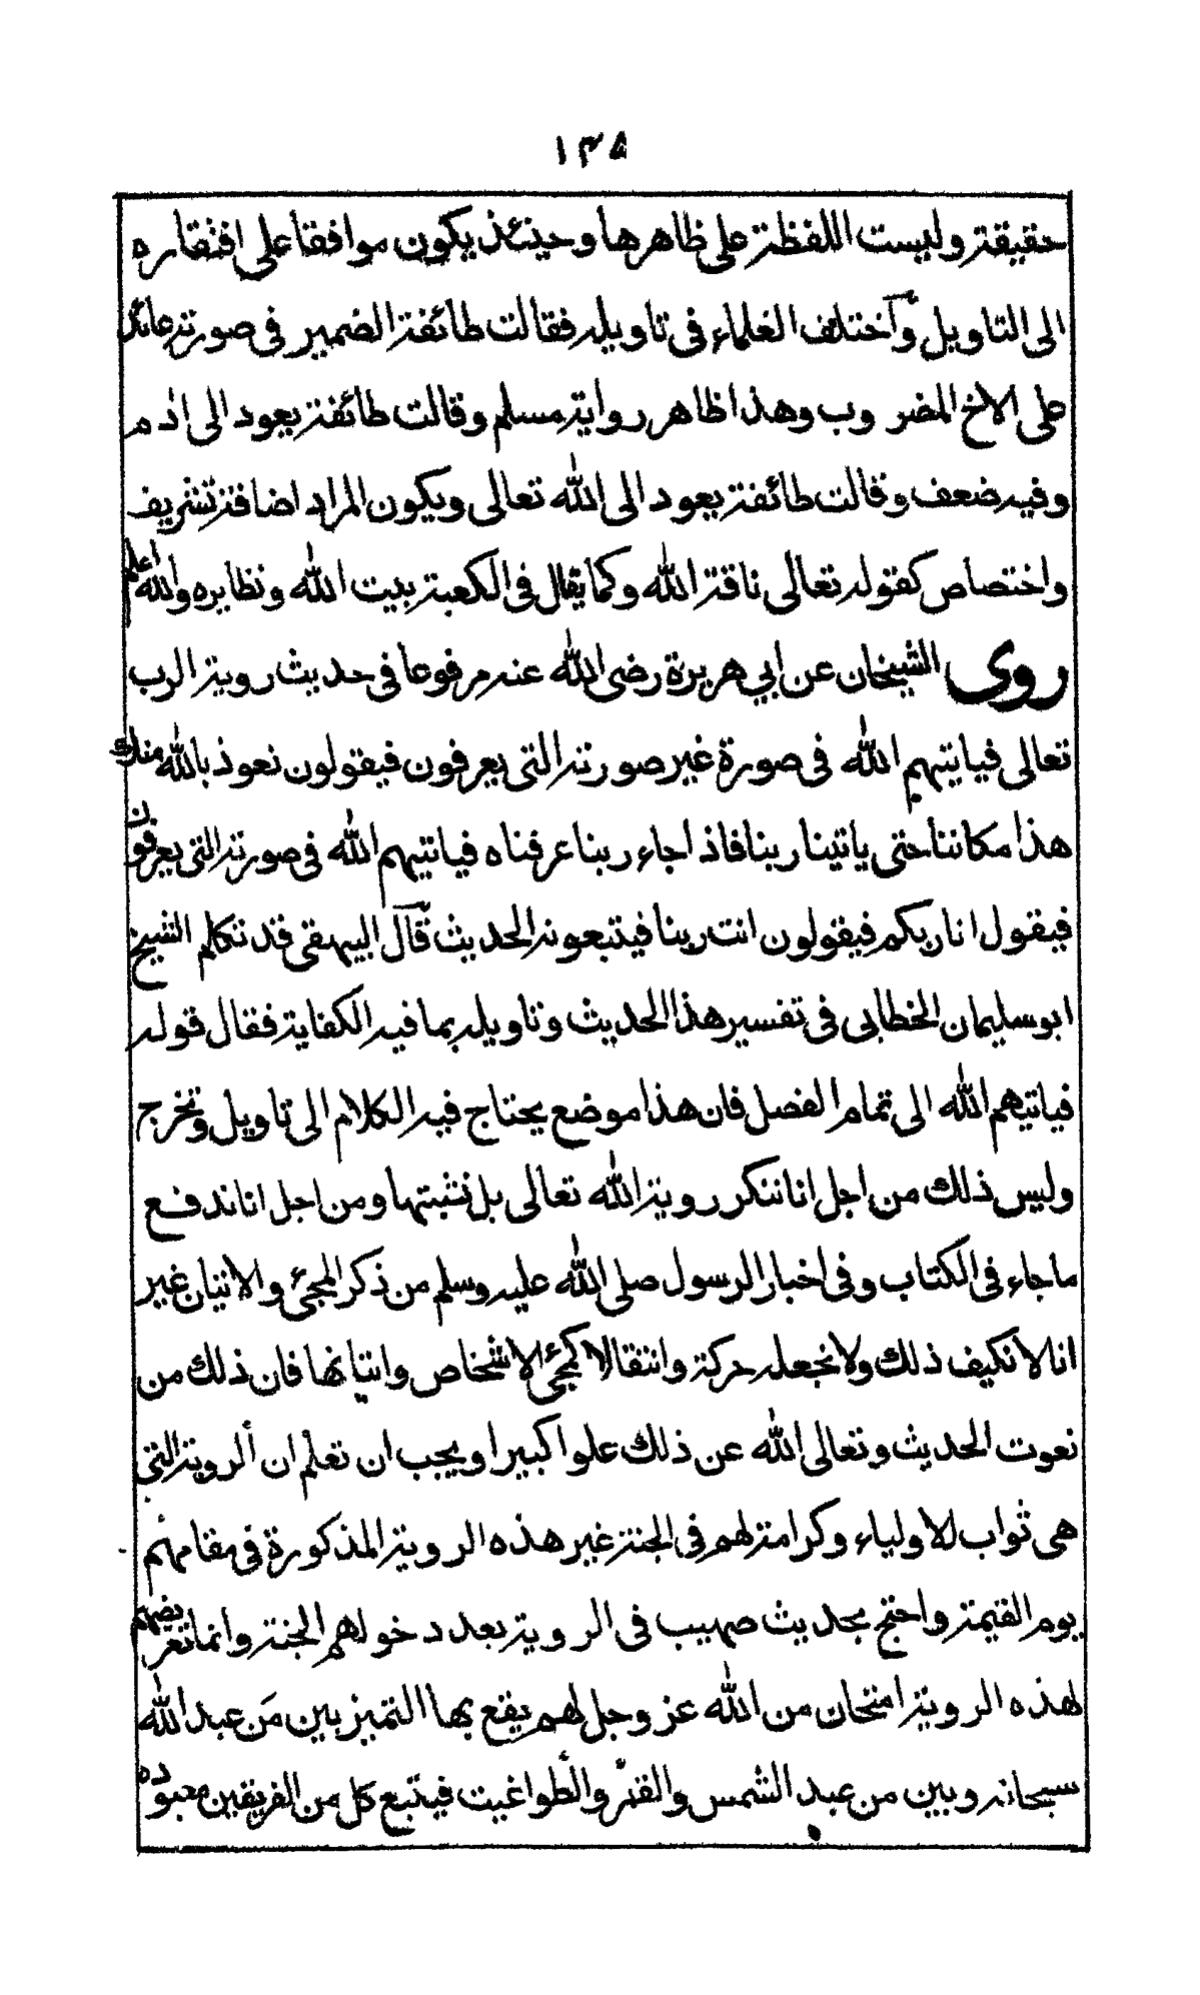 ١٣٨
حقيقة وليست اللفظة على ظاهرها وحينئذ يكون موافقا على افتقاره
الى التاويل واختلف العلماء فى تاويله فقالت طائفة الضمير فى صورته عائد
على الاخ المضروب وهذا ظاهر رواية مسلم وقالت طائفة يعود الى ادم
وفيه ضعف وقالت طائفة يعود الى الله تعالى ويكون المراد اضافة تشريف
واختصاص كقوله تعالى ناقة الله وكما يقال فى الكعبة بيت الله ونظايره والله اعلم
روى الشيخان عن ابي هريرة رضى الله عنه مرفوعا فى حديث روية الرب
تعالى فياتيهم الله فى صورة غير صورته التى يعرفون فيقولون نعوذ بالله منك
هذا مكاننا حتى ياتينا ربنا فاذا جاء ربنا عرفناه فياتيهم الله فى صورته التى يعرفون
فيقول انا ربكم فيقولون انت ربنا فيتبعونه الحديث قال البيهقى قد تكلم الشيخ
ابو سليمان الخطابى فى تفسير هذا الحديث وتاويله بما فيه الكفاية فقال قوله
فياتيهم الله الى تمام الفصل فان هذا موضع يحتاج فيه الكلام الى تاويل وتخرج
وليس ذلك من اجل انا ننكر روية الله تعالى بل نثبتها ومن اجل انا ندفع
ماجاء فى الكتاب وفى اخبار الرسول صلى الله عليه وسلم من ذكر المجئ والاتيان غير
انا لا نكيف ذلك ولا نجعله حركة وانتقالا كمجئ الاشخاص واتيانها فان ذلك من
نعوت الحديث وتعالى الله عن ذلك علوا كبيرا ويجب ان تعلم ان الروية التى
هى ثواب للاولياء وكرامة لهم فى الجنة غير هذه الروية المذكورة فى مقامهم
يوم القيمة واحتج بحديث صهيب فى الروية بعد دخولهم الجنة وانما تعريضهم
لهذه الروية امتحان من الله عز وجل لهم يقع بها التميز بين من عبد الله
سبحانه وبين من عبد الشمس والقمر والطواغيت فيتبع كل من الفريقين معبوده